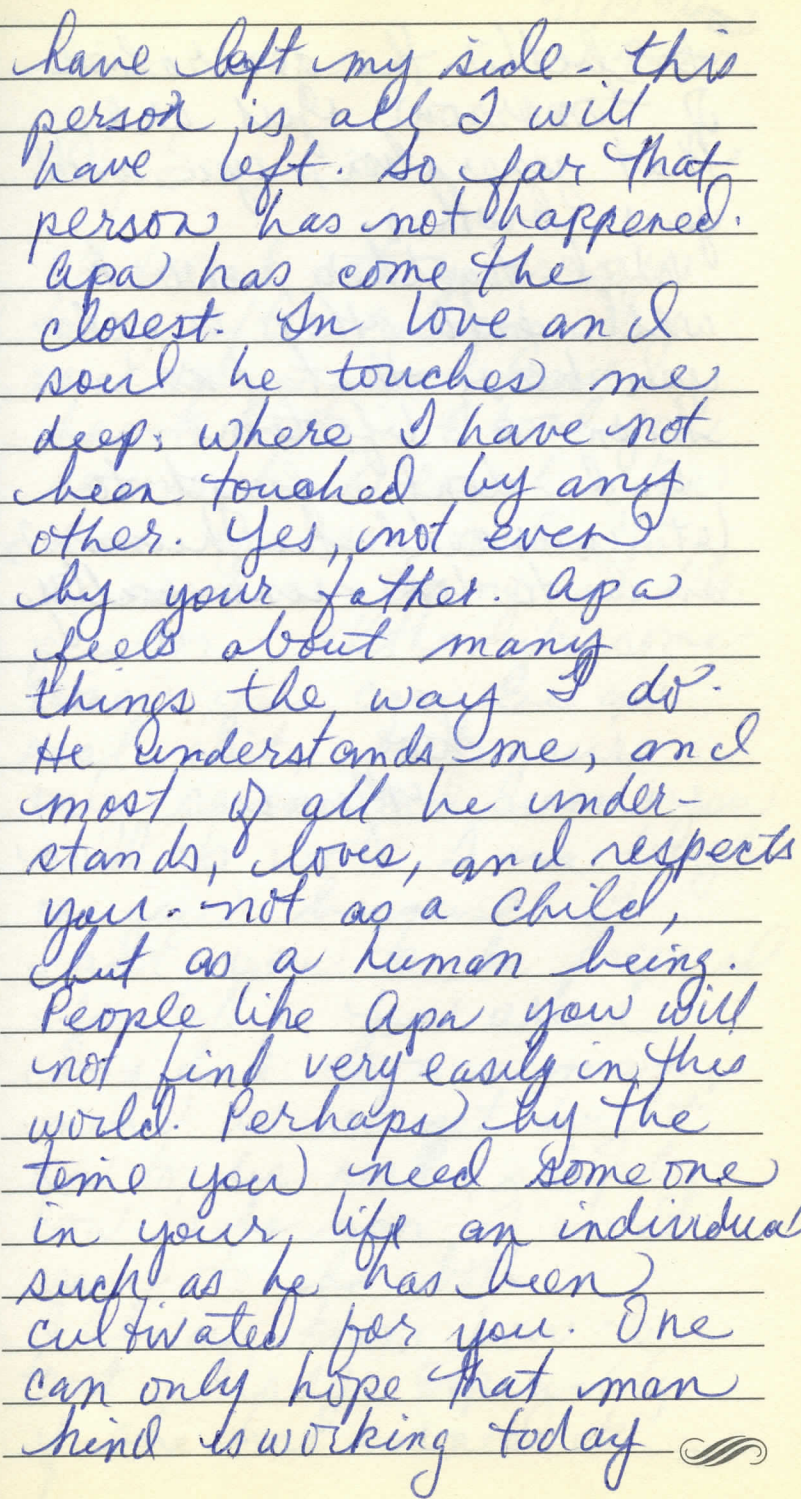 have left my side - this
person is all I will
have left. So far that
person has not happened.
Apa has come the
closest. In love and
soul he touches me
deep: where I have not
been touched by any
other. Yes, not even
by your father. Apa
feels about many
things the way I do.
He understands me, and
most of all he under-
stands, loves, and respects
you. not as a child,
but as a human being.
People like Apa you will
not find very easily in this
world. Perhaps by the
time you need someone
in your life an individual
such as he has been
cultivated for you. One
can only hope that man
kind is working today